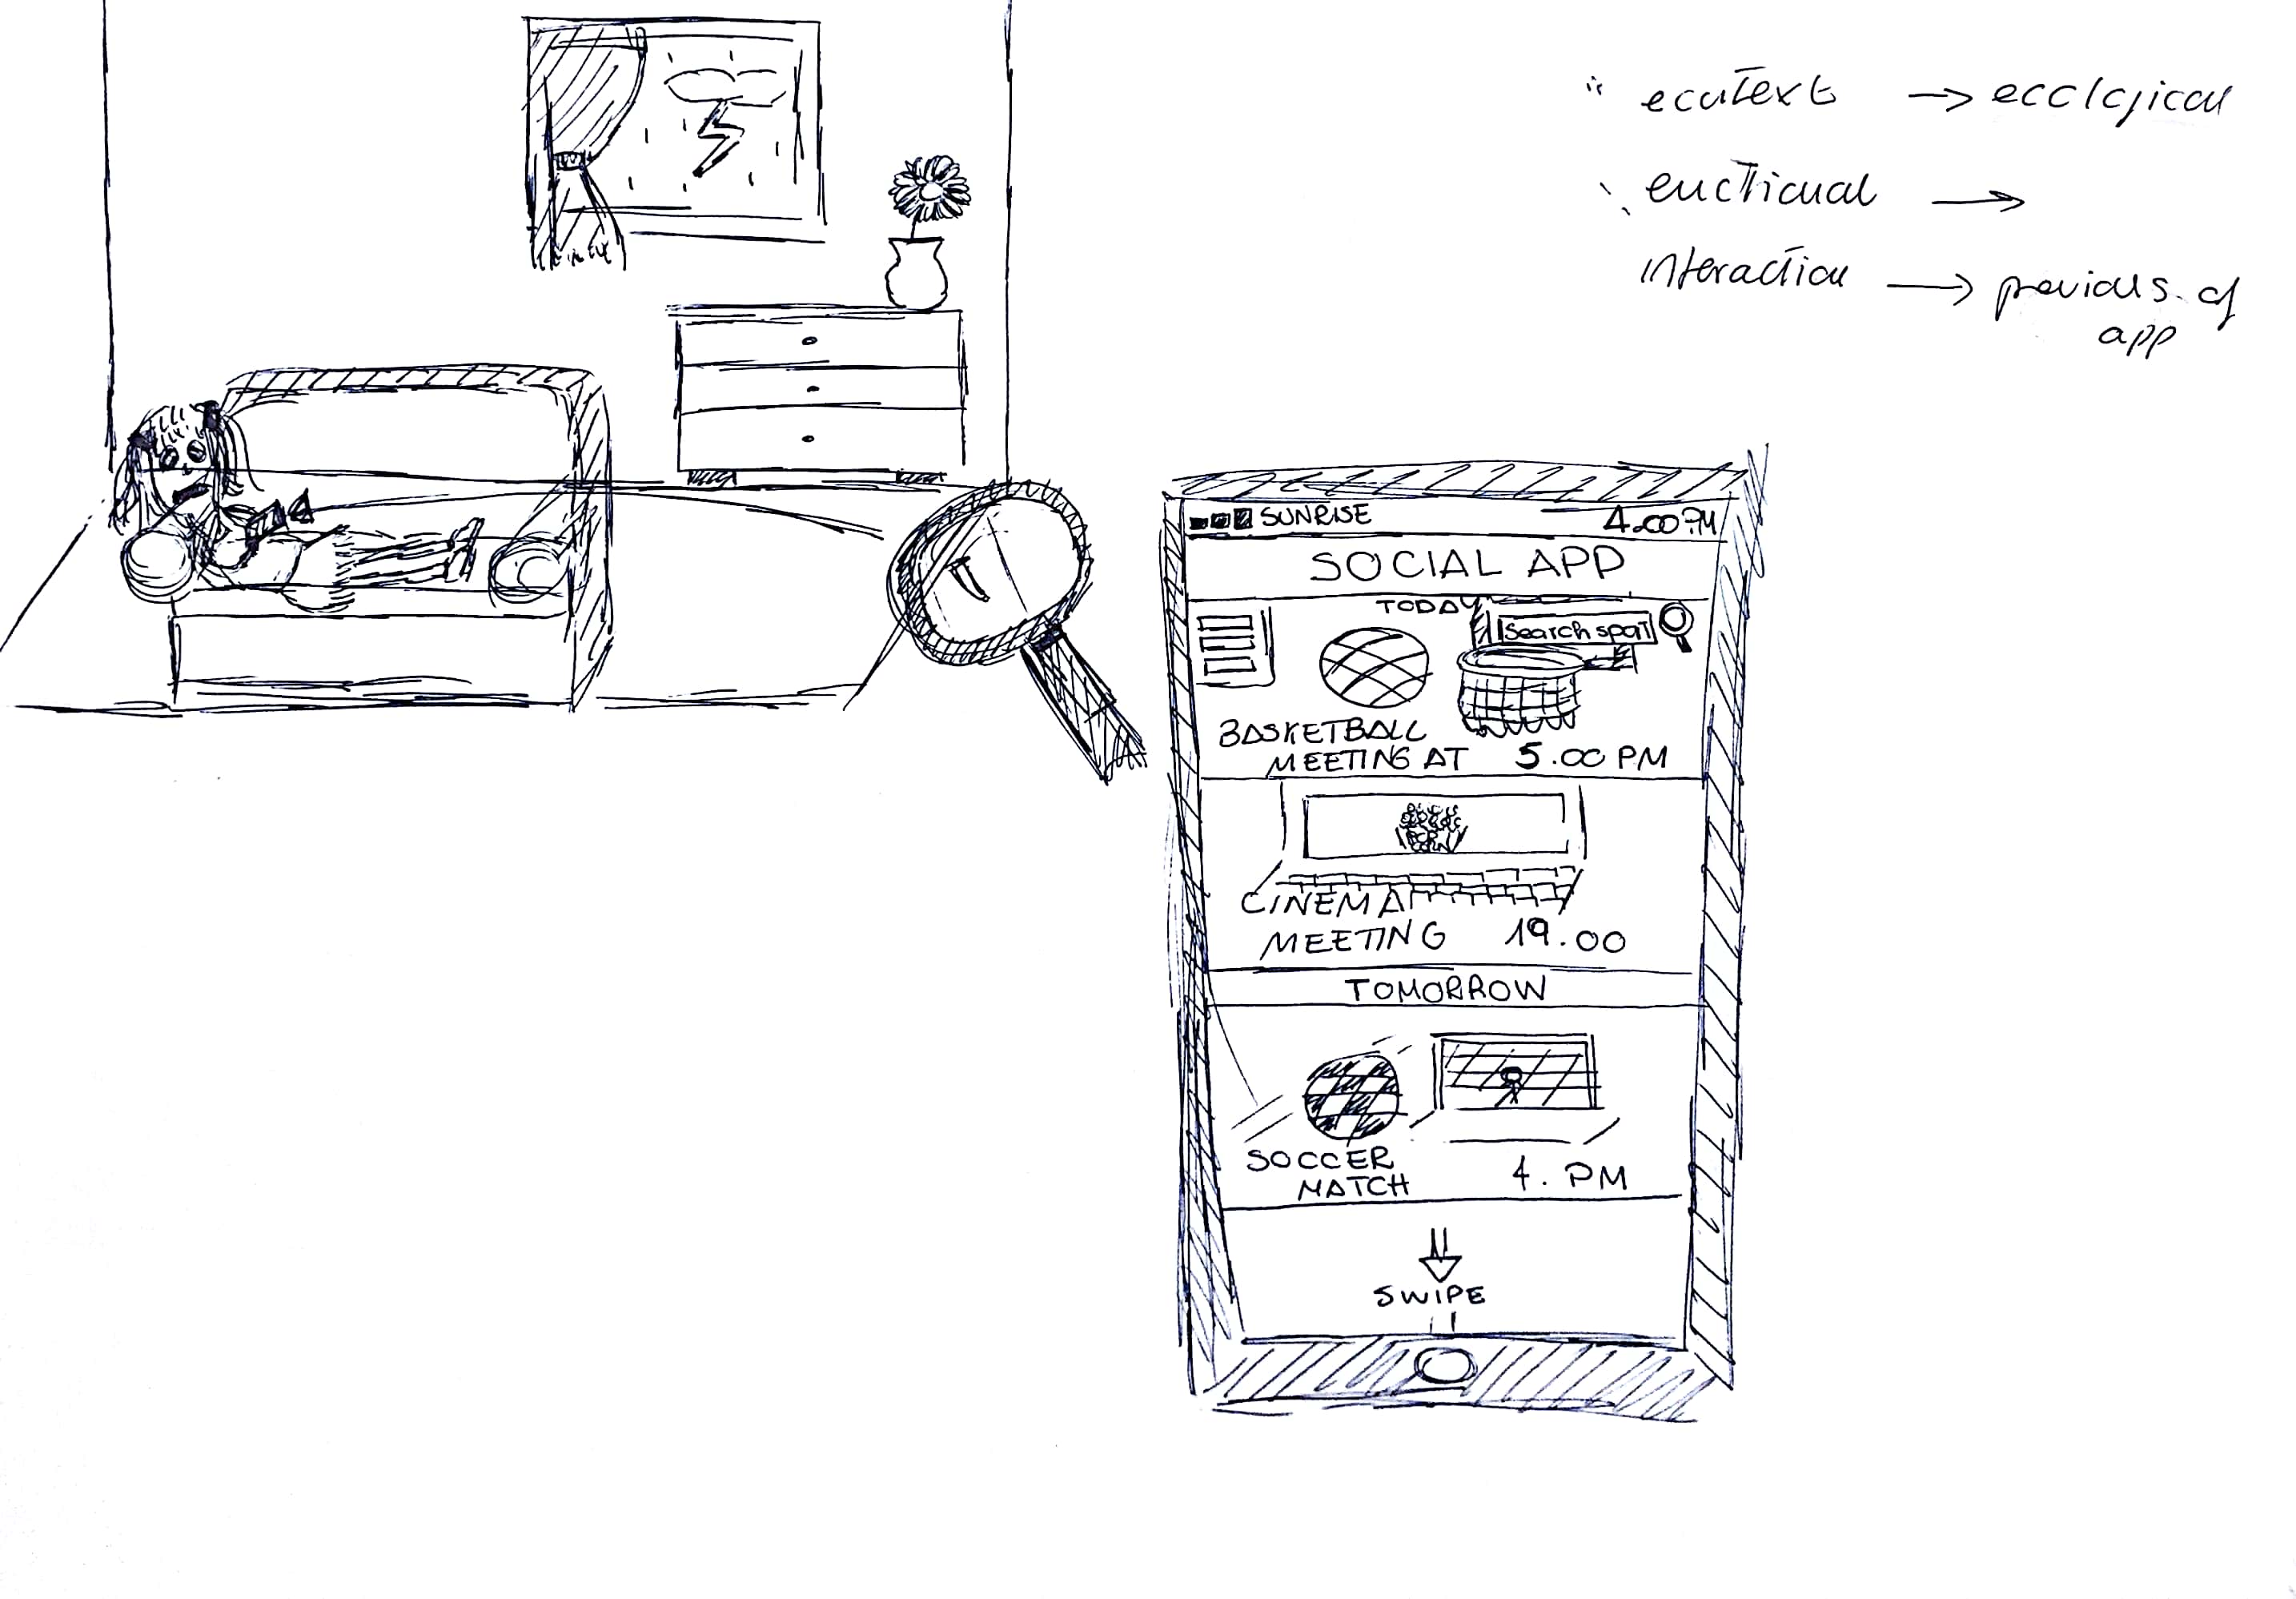 ecotext → ecological
emotional →
interaction → previous of
app
SUNRISE 4.00 PM
SOCIAL APP
TODAY
Search spot
BASKETBALL
MEETING AT 5.00 PM
POP
CORN
CINEMA
MEETING 19.00
TOMORROW
SOCCER
MATCH 4. PM
SWIPE